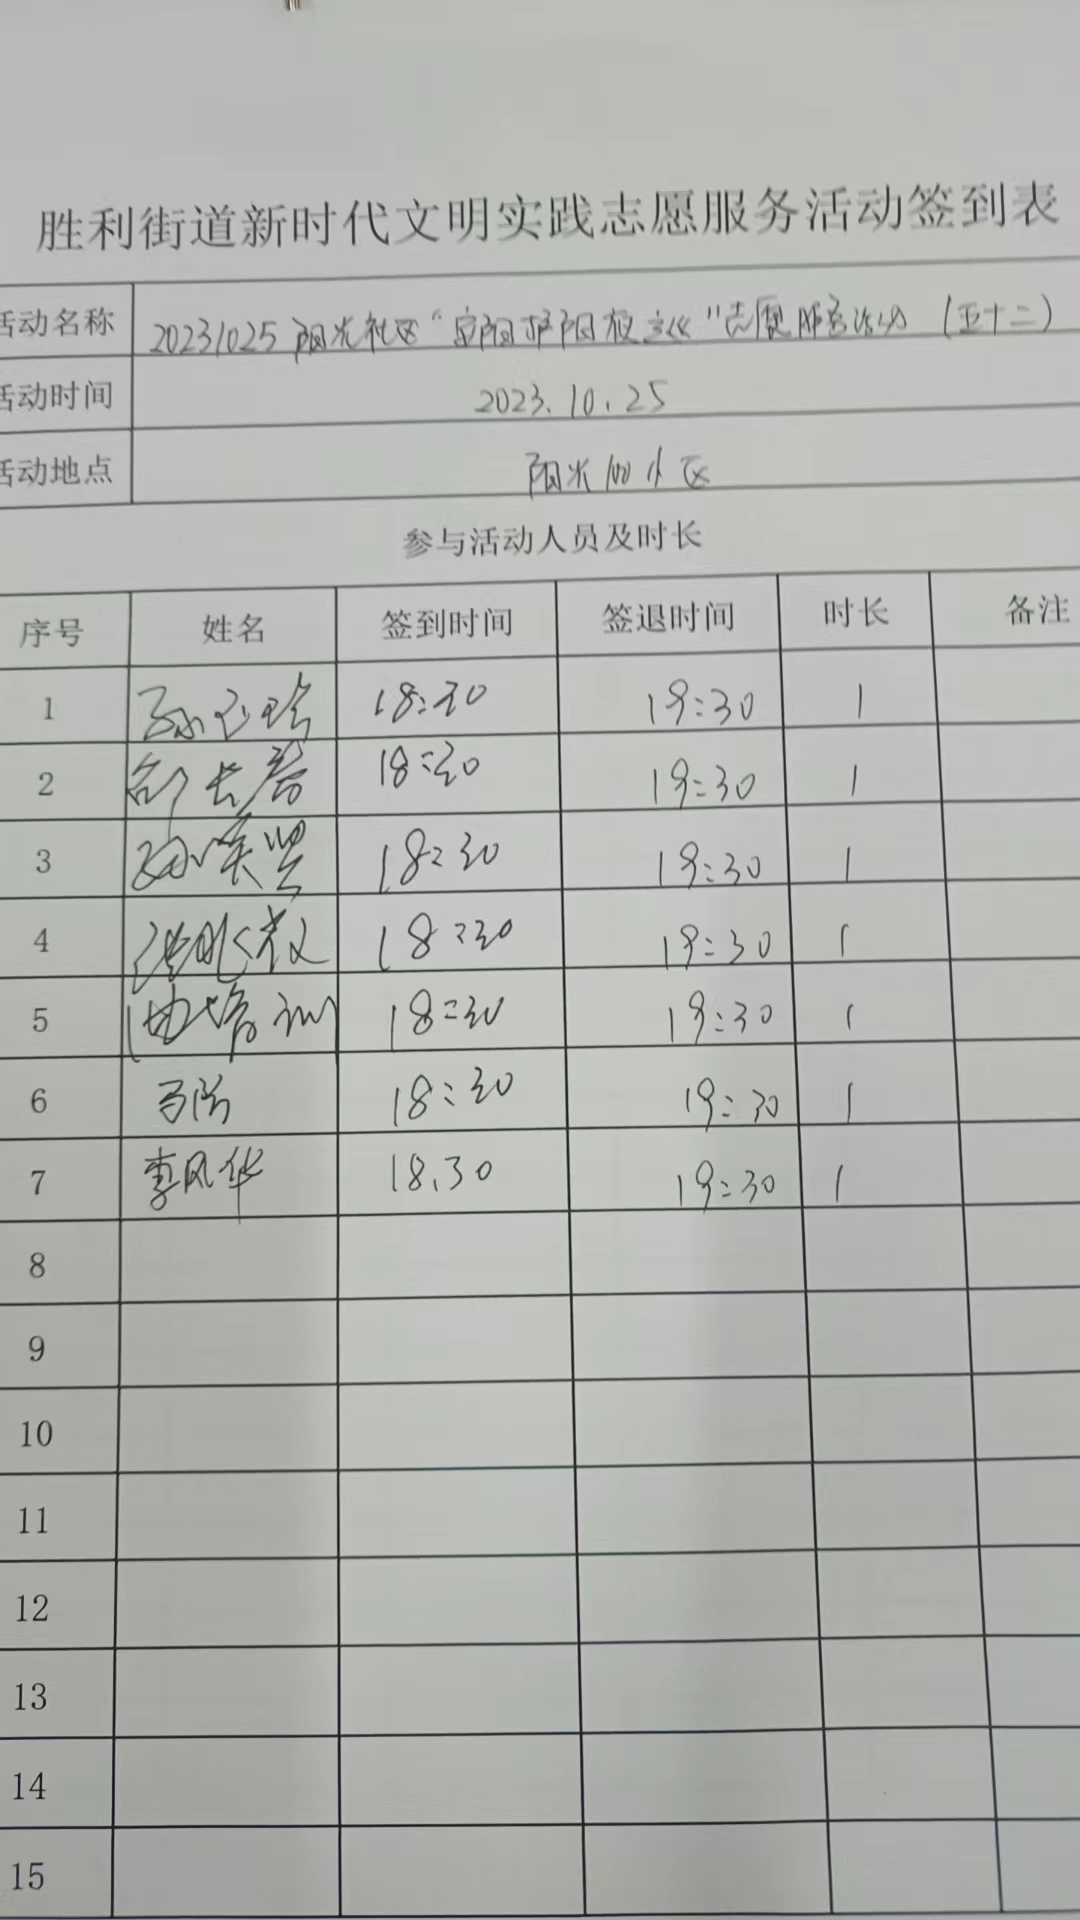 胜利街道新时代文明实践志愿服务活动签到表
活动名称 20231025 阳光社区“ ”志愿服务活动 (五十二)
活动时间 2023.10.25
活动地点 阳光100小区
参与活动人员及时长
序号 姓名 签到时间 签退时间 时长 备注
1 18:30 19:30 1
2 18:30 19:30 1
3 18:30 19:30 1
4 18:30 19:30 1
5 18:30 19:30 1
6 18:30 19:30 1
7 李风华 18.30 19:30 1
8
9
10
11
12
13
14
15